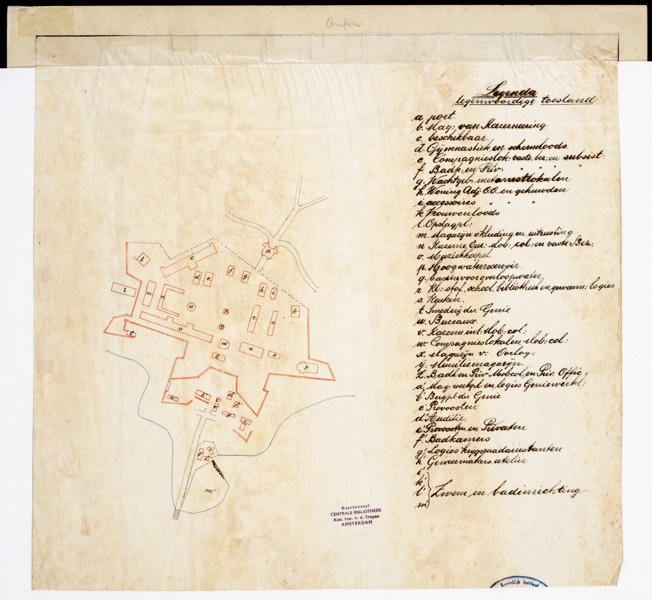 Ambon
Legenda
tegenwoordige toestand
a port
b. Mag: van Kazerneering
c. beschikbaar
d Gymnastiek en schermloods
e. Compagnieslok: vaste bez: en subsist:
f. Badk. en Priv: " " " "
g. Wachtgeb: met arrestlokalen
h. Woning Adj. O.O. en gehuwden
i accessoires " " "
k Vrouwenloods
l. Opslagpl:
m. Magazijn v kleeding en uitrusting
n Kazerne Eur: Mob: col: en vaste Bez:
o. Muziekkoepel
p. Hoogwaterreservoir
q. bassin voor overloopwater
r Kl: stof, school, bibliotheek en logies
s Keuken
t Smederij der Genie
u. Bureaux
v. Kazerne inl: Mob: col:
w. Compagnieslokalen Mob: col:
x. Magazijn v: Oorlog
y. Munitiemagazijn
z. Badk en Priv: Mob: col: en Priv: Offic:
a' Mag. werkpl en logies Geniewerkl:
b' Bergpl der Genie
c' Provoosten
d' Auditie
e' Provoosten en Privaten
f' Badkamers
g' Logies krijgsraadarrestanten
h' Geweermakers atelier
i'
k'
l' Zwem en badinrichting
m'
Kaartenzaal
CENTRALE BIBLIOTHEEK
Kon. Inst. v. d. Tropen
AMSTERDAM
Koninklijk Instituut